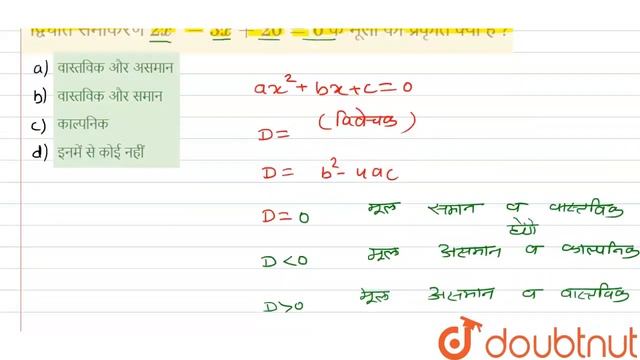 द्विघात समीकरण 2x² - 3x + 20 = 0 के मूलों की प्रकृति क्या है ?
a) वास्तविक और असमान
b) वास्तविक और समान
c) काल्पनिक
d) इनमें से कोई नहीं
ax² + bx + c = 0
D = (विवेचक)
D = b² - 4ac
D = 0 मूल समान व वास्तविक होंगे
D < 0 मूल असमान व काल्पनिक
D > 0 मूल असमान व वास्तविक
doubtnut